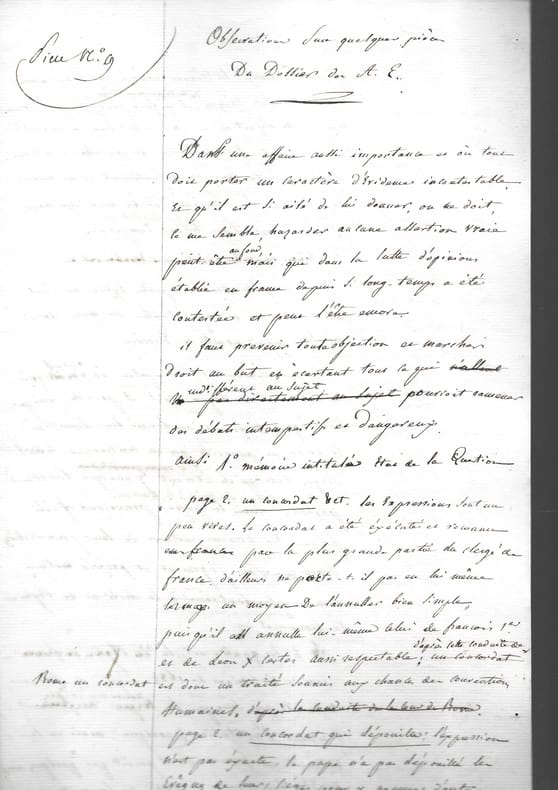 Piece N.° 9
Observations sur quelques pièces
Du Dossier des A. E.
Dans une affaire aussi importance et où tout
doit porter un caractère d'évidence incontestable,
Et qu'il est si aisé de lui donner, on ne doit,
ce me semble hazarder aucune assertion vraie
peut-être au fond, mais qui dans la lutte d'opinions
établie en france depuis si long-temps a été
contestée et peut l'être encore.
il faut prevenir toute objection et marcher
droit au but en ecartant tout ce qui
indifférent au sujet
pas directement au sujet pourroit ramener
des débats intempestifs et dangereux.
Ainsi 1.° mémoire intitulé état de la Question
page 2. un concordat &ct. les Expressions sont un
peu vives. le concordat a été éxécuté et reconnu
en france par la plus grande partie du clergé de
france, d'ailleurs ne porte-t-il pas en lui même
un moyen De l'annuller bien simple,
puisqu'il annulle lui-même celui de francois 1.er
et de Leon X certes aussi respectable; d'après cette conduite de
Rome un concordat
est donc un traité soumis aux chances des conventions
Humaines, d'après la conduite de la cour de Rome.
page 2. un concordat qui dépouille: l'expression
n'est pas éxacte. le pape n'a pas dépouillé les
Evêques de leurs